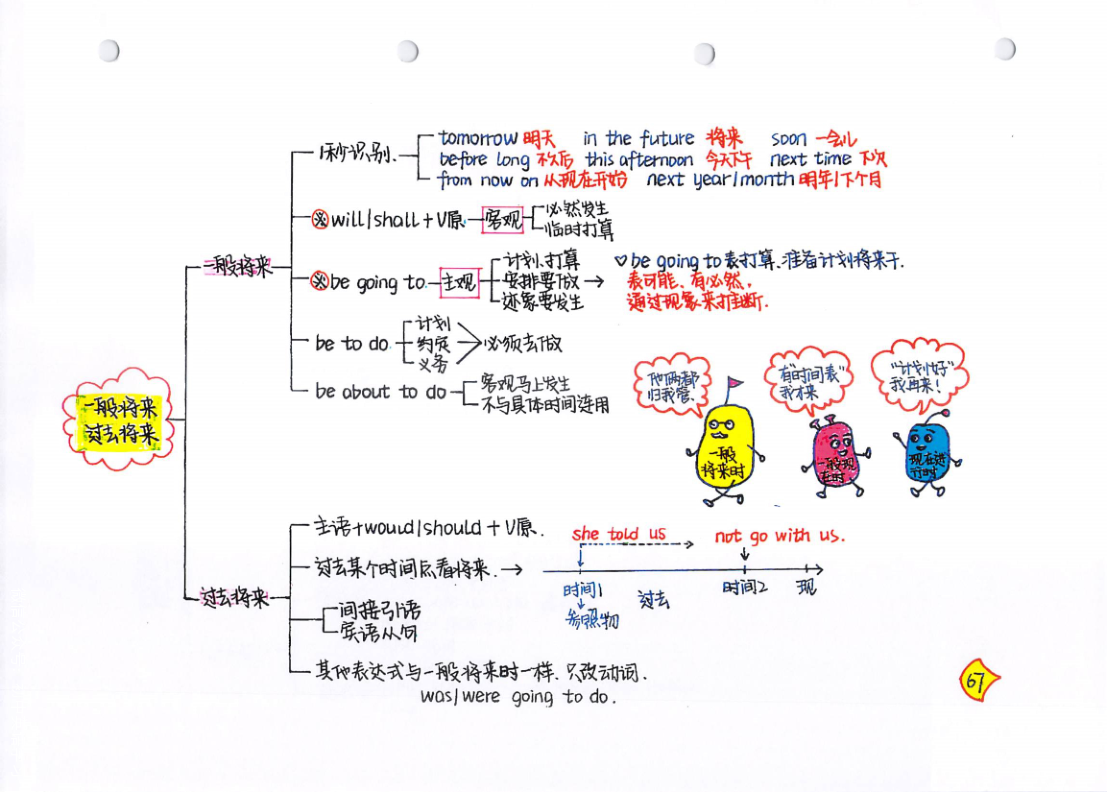 一般将来
过去将来
一般将来
1秒识别.
tomorrow 明天 in the future 将来 soon 一会儿
before long 不久后 this afternoon 今天下午 next time 下次
from now on 从现在开始 next year/month 明年/下个月
※will/shall+V原.
客观
必然发生
临时打算
※be going to.
主观
计划.打算
安排要做
迹象要发生
♡be going to表打算.准备计划将来干.
表可能、有必然,
通过现象来推断.
be to do
计划
约定
义务
必须去做
be about to do
客观马上发生
不与具体时间连用
他俩都
归我管.
一般
将来时
有"时间表"
我才来
一般现
在时
"计划好"
我再来!
现在进
行时
过去将来
主语+would/should+V原.
过去某个时间点看将来.
she told us
not go with us.
时间1
过去
时间2
现
参照物
间接引语
宾语从句
其他表达式与一般将来时一样.只改动词.
was/were going to do.
67